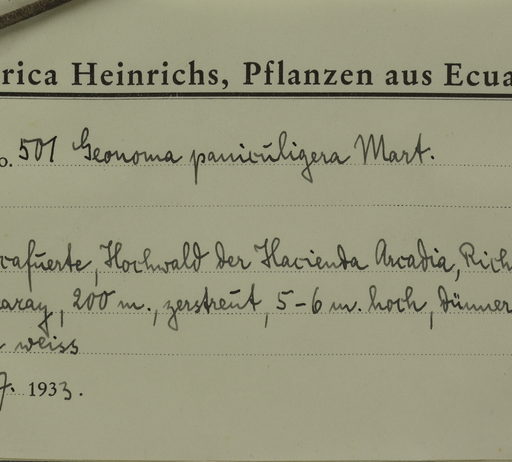 rica Heinrichs, Pflanzen aus Ecua
o. 501 Geonoma paniculigera Mart.
cafuerte, Hochwald der Hacienda Arcadia, Rich
aray, 200 m., zerstreut, 5-6 m. hoch, dünner
weiss
7. 1933.